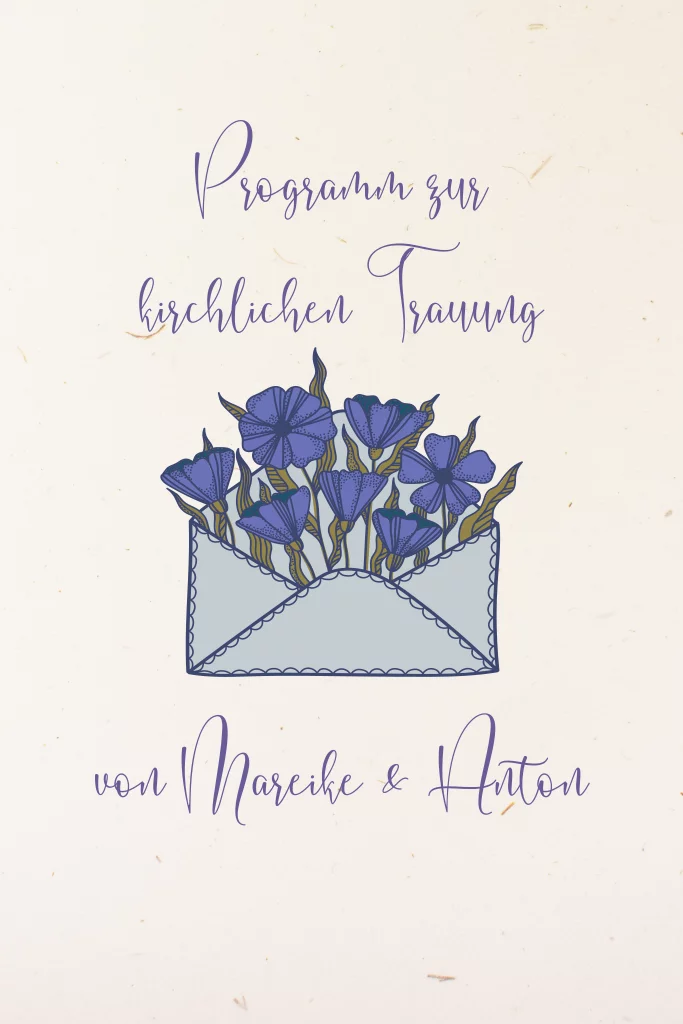 Programm zur
kirchlichen Trauung
von Mareike & Anton